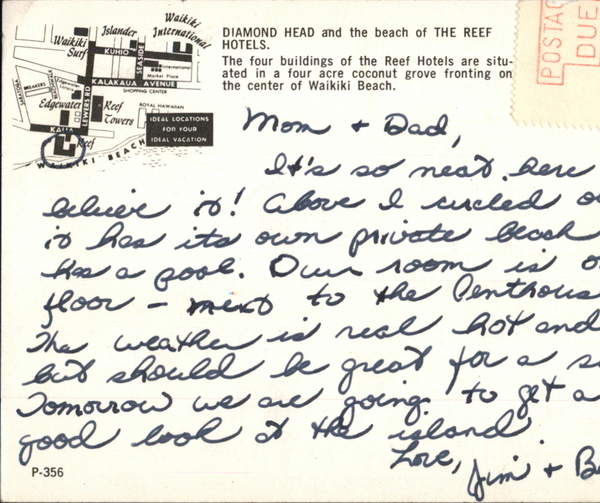 Waikiki
International
Islander
Waikiki
Surf
KUHIO
SEASIDE
International
Market Place
KALAKAUA AVENUE
SHOPPING CENTER
SARATOGA
BREAKERS
LEWERS RD
Edgewater
Reef
Towers
ROYAL HAWAIIAN
KALIA
Reef
WAIKIKI BEACH
IDEAL LOCATIONS
FOR YOUR
IDEAL VACATION
DIAMOND HEAD and the beach of THE REEF
HOTELS.
The four buildings of the Reef Hotels are situ-
ated in a four acre coconut grove fronting on
the center of Waikiki Beach.
POSTAG
DUE
Mom + Dad,
It's so neat here
believe it! Above I circled
it has its own private beach
has a pool. Our room is
floor - next to the Penthous
The weather is real hot and
but should be great for a
Tomorrow we are going to get a
good look at the island.
Love,
Jim + B
P-356